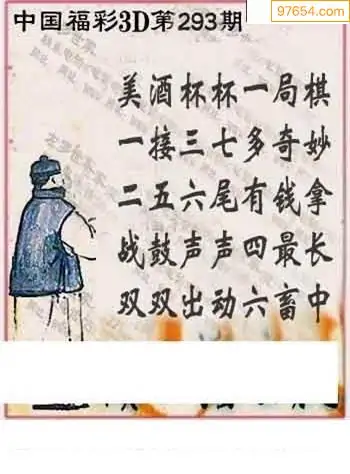 97654.com
中国福彩3D第293期
美酒杯杯一局棋
一接三七多奇妙
二五六尾有钱拿
战鼓声声四最长
双双出动六畜中